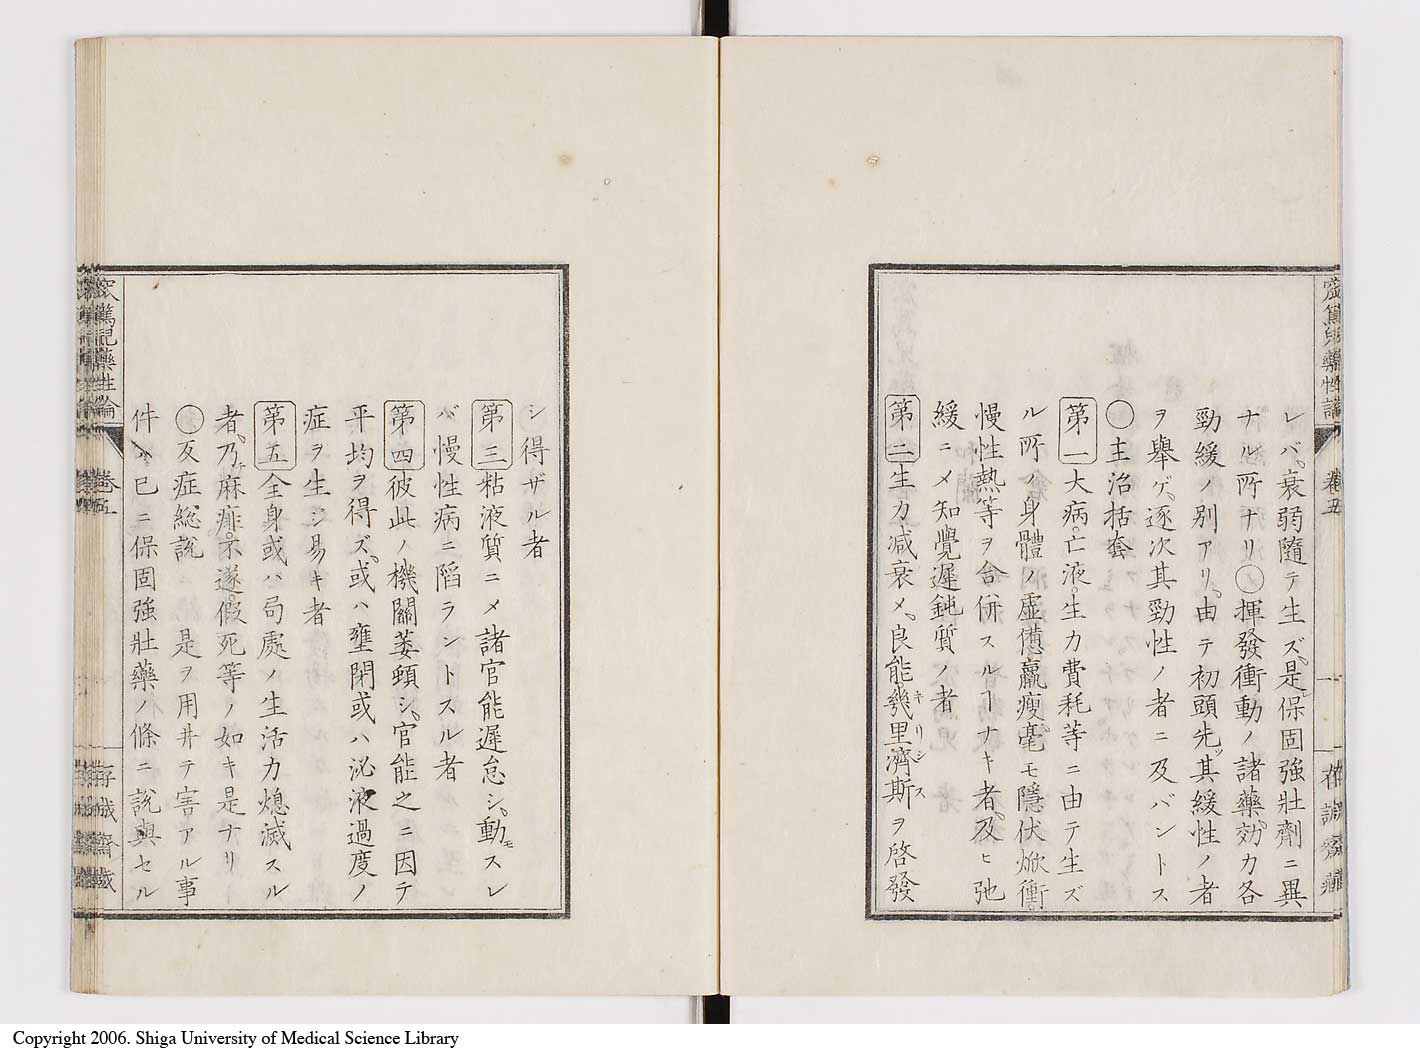 窊篤児薬性論 巻五 一 存誠齋蔵
レバ、衰弱隨テ生ズ、是レ保固強壮劑ニ異
ナル所ナリ○揮發衝動ノ諸藥、効力各
勁緩ノ別アリ、由テ初頭先ヅ其緩性ノ者
ヲ舉ゲ、逐次其勁性ノ者ニ及バントス
○主治括套
第一 大病。亡液。生力費耗等ニ由テ生ズ
ル所ノ身體ノ虚憊羸瘦、毫モ隱伏焮衝。
慢性熱等ヲ合併スルヿナキ者、及ヒ弛
緩ニメ知覺遲鈍質ノ者
第二 生力减衰メ、良能幾里濟斯ヲ啓發
キリシス
シ得ザル者
第三 粘液質ニメ諸官能遲怠シ、動モスレ
バ慢性病ニ陷ラントスル者
第四 彼此ノ機關萎頓シ、官能之ニ因テ
平均ヲ得ズ、或ハ壅閉或ハ泌液過度ノ
症ヲ生シ易キ者
第五 全身或ハ局處ノ生活力熄滅スル
者、乃ケ麻痱。不遂。假死等ノ如キ是ナリ
○反症総説 是ヲ用井テ害アル事
件ハ已ニ保固強壮藥ノ條ニ説與セル
巻五
Copyright 2006. Shiga University of Medical Science Library